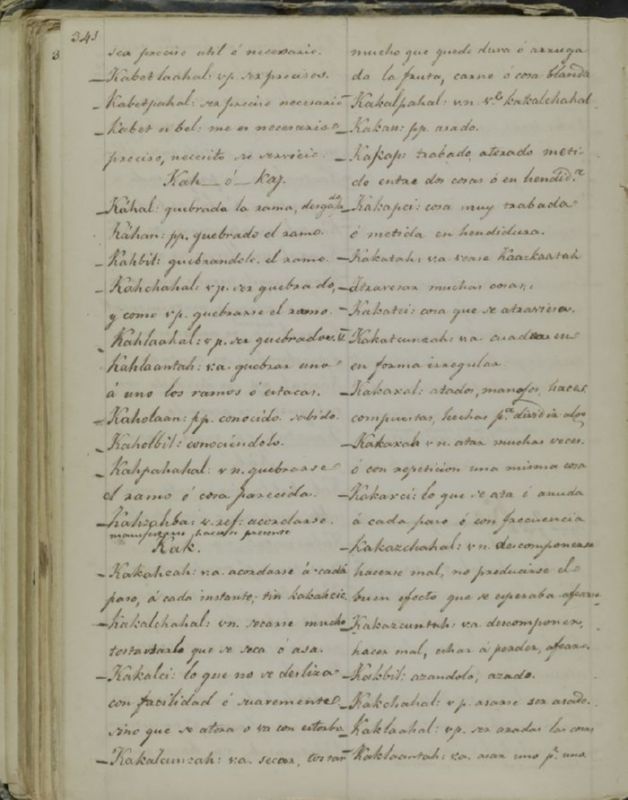 341
3
sea preciso util ó necesario.
–Kabetlaahal: vp. ser precisos.
–Kabetpahal: ser preciso necesario
–Kabet u bel: me es necesario
preciso, necesito su servicio.
Kah_ ó _ Kaj.
–Káhal: quebrada la rama, desgajada
Káhan: pp. quebrado el ramo.
–Kahbil: quebrandole el ramo.
–Kahchahal: vp. ser quebrado,
y como vp. quebrarse el ramo.
–Kahlaahal: vp. ser quebrados
Kahlaantah: va. quebrar uno
á uno los ramos ó estacas.
–Kaholaan: pp. conocido sabido.
–Kaholbil: conociéndolo.
–Kahpahahal: vn. quebrarse
el ramo ó cosa parecida.
–Kahzahba: v. ref: acordarse.
manifestarse, hacerse presente
Kak.
–Kakahcah: va. acordarse á cada
paso, á cada instante; tin kakahcic
–Kakalchahal: vn. secarse mucho
tostarlo que se seca ó asa.
–Kakalci: lo que no se desliza
con facilidad ó suavemente
sino que se atora o va con estorbo.
–Kakalcunzah: va. secar, tostar
mucho que quede dura ó arruga
da la fruta, carne ó cosa blanda
–Kakalpahal: vn. kakalchahal
–Kakan: pp. asado.
–Kakap: trabado, atorado meti-
do entre dos cosas ó en hendid.ª
–Kakapci: cosa muy trabada
ó metida en hendidura.
–Kakatah: va vease Kaackaatah
Atravesar muchas cosas,
–Kakatci: cosa que se atraviesa.
–Kakatcunzah: va.
en forma irregular.
–Kakaxal: atados, manojos, haces
compuestas, hechas p.ª dividir algo
–Kakaxah vn. atar muchas veces.
ó con repeticion una misma cosa
–Kakaxci: lo que se ata ó anuda
á cada paso ó con frecuencia
–Kakazchahal: vn. descomponerse
hacerse mal, no producirse el
buen efecto que se esperaba afearse
–Kakazcuntah: va descomponer,
hacer mal, echar á perder, afear.
–Kakbil: azandolo, azado.
–Kakchahal: vp. asarse ser asado.
–Kaklaahal: vp. ser azadas las cosas
–Kaklaantah: va. asar uno p.r uno